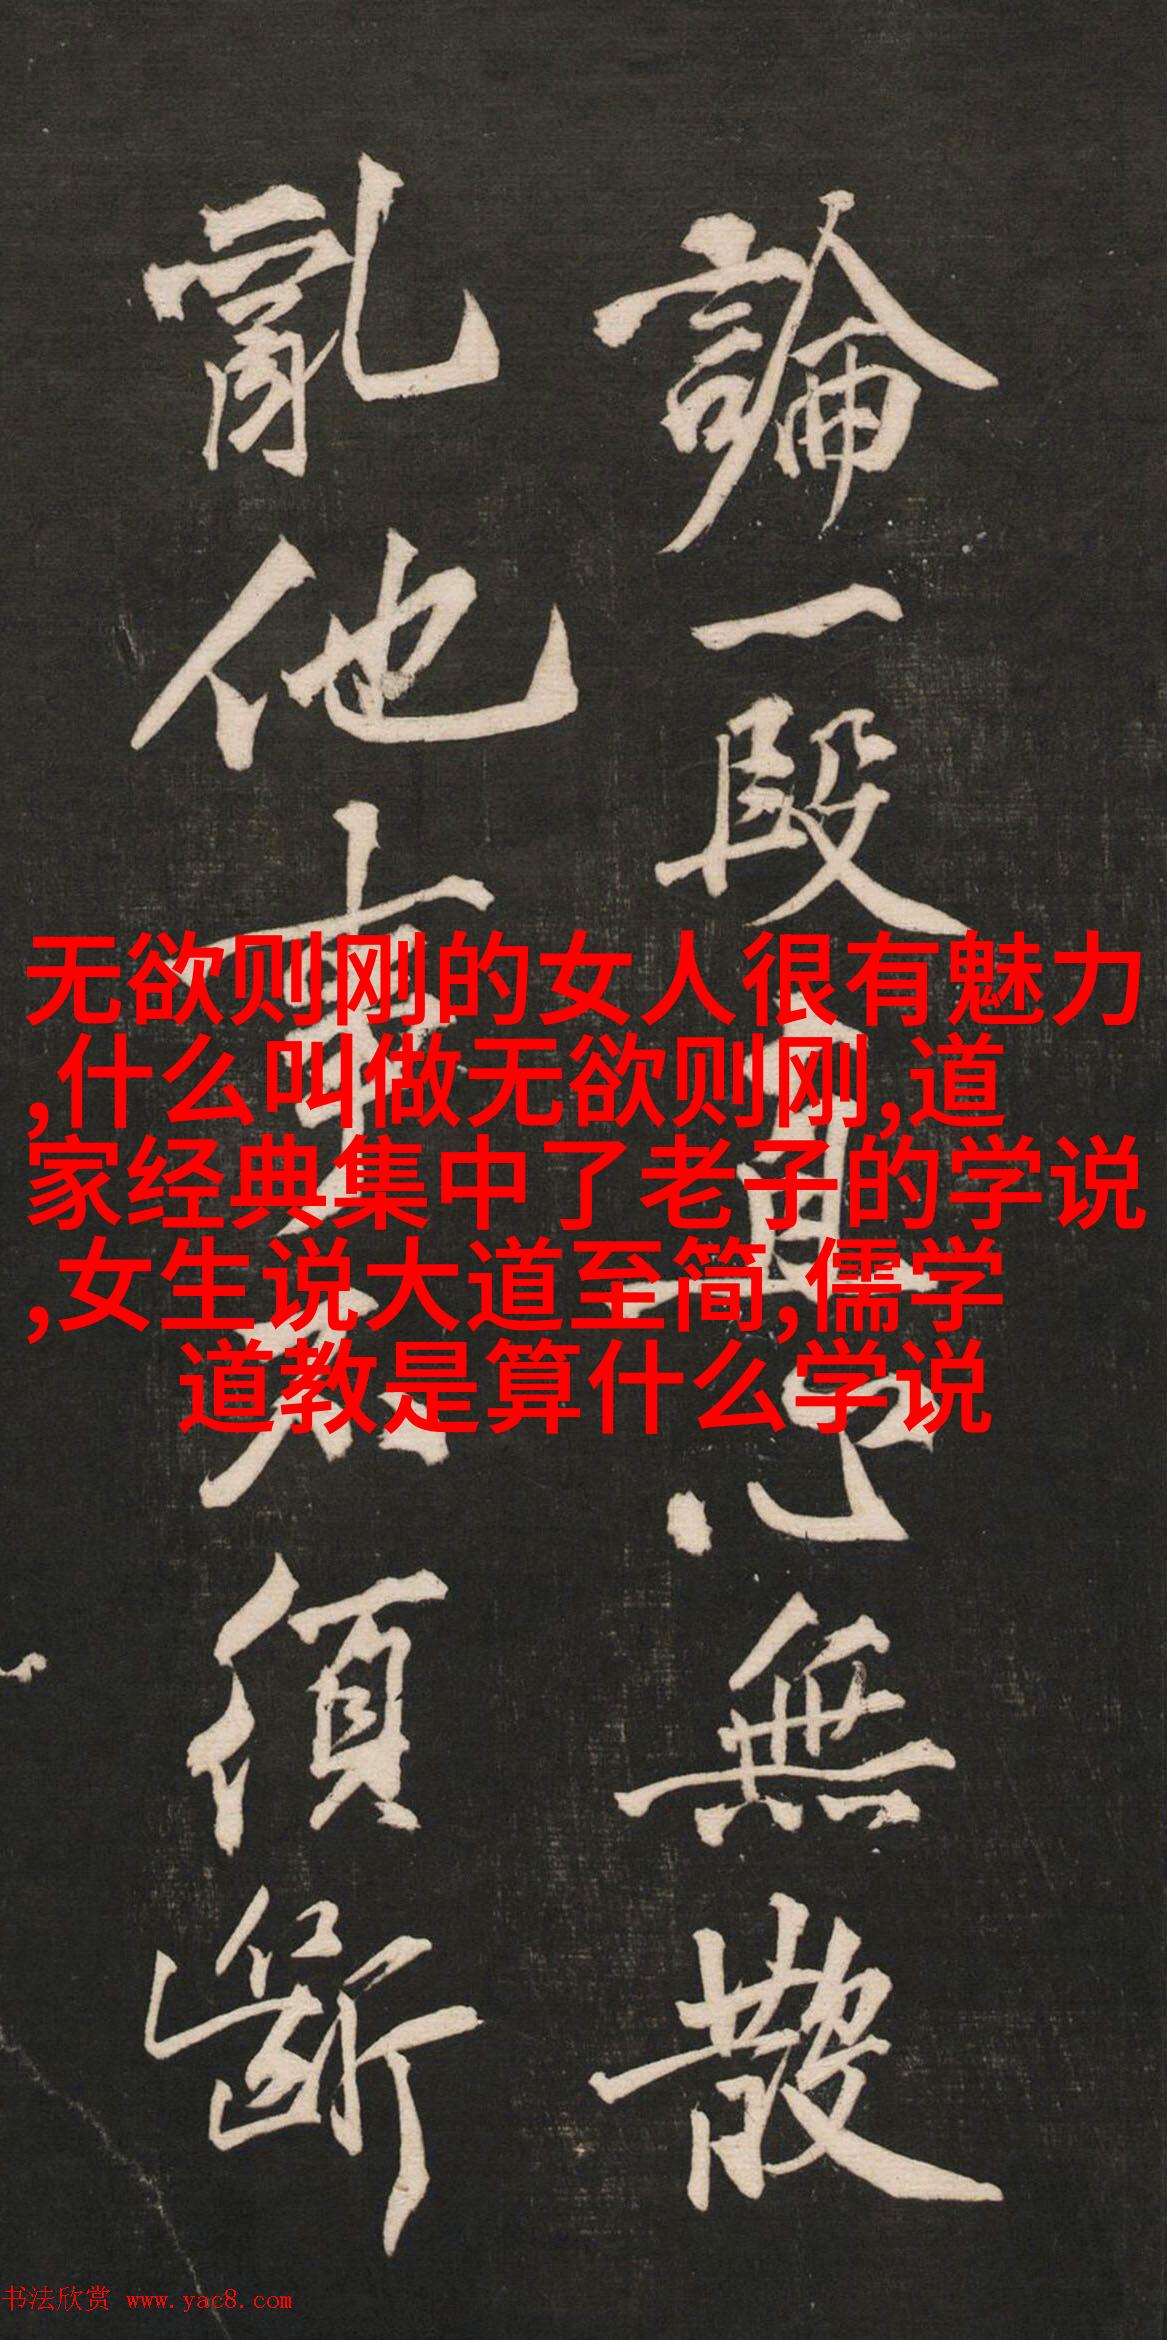 論一段真心無散
亂他事亦須斷
无欲则刚的女人很有魅力
,什么叫做无欲则刚,道
家经典集中了老子的学说
,女生说大道至简,儒学
道教是算什么学说
书法欣赏 www.yac8.com